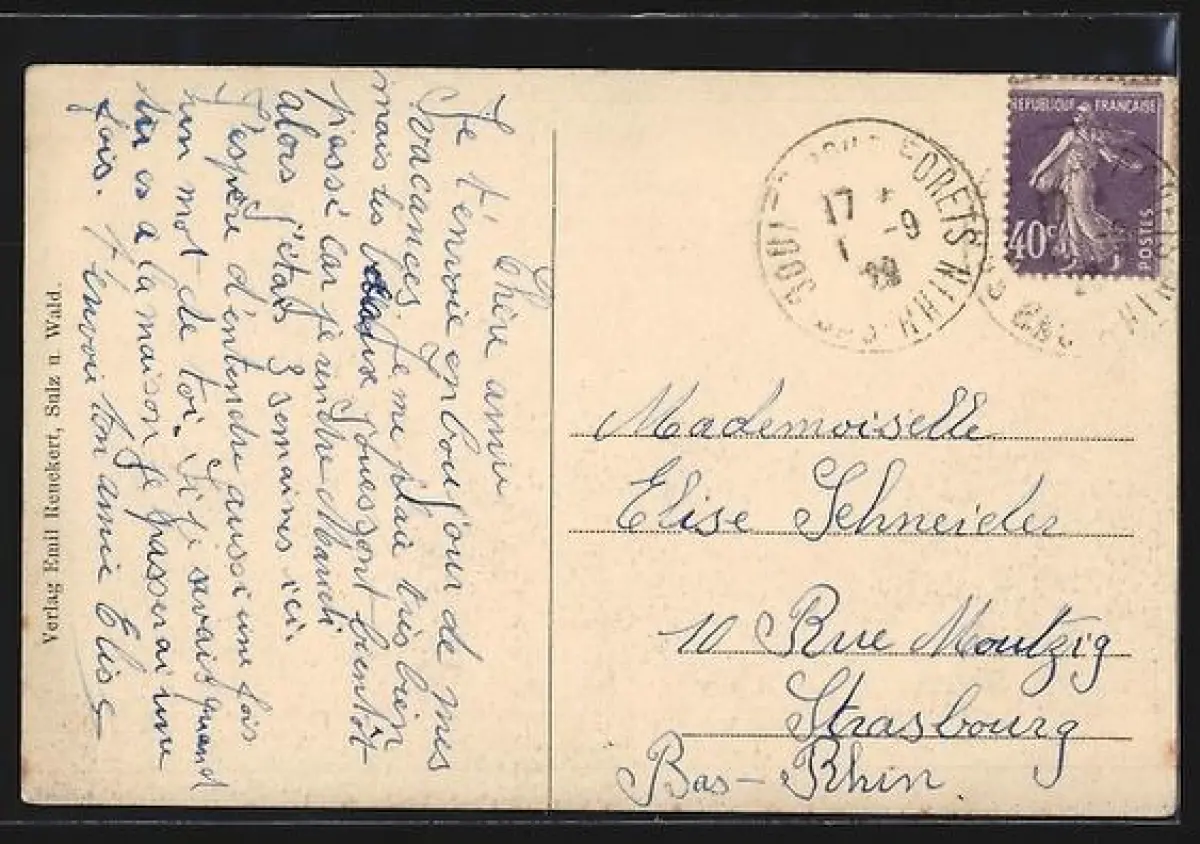 Chère amie
Je t'envoie en bonjour de mes
vacances, Je me plaià très bien
mais les jours sont bientôt
passé car je rentre Mardi
alors j'étais 3 semaines ici.
J'espère d'entendre aussi une fois
un mot de toi. Si je savais quand
tu es a la maison Je passerai une
fois. T'envoie ton amie Elise
Verlag Emil Renckert, Sulz u. Wald.
REPUBLIQUE FRANÇAISE
40c
POSTES
FORETS
17 - 9
RHIN
Mademoiselle
Elise Schneider
10 Rue Moutzig
Strasbourg
Bas-Rhin